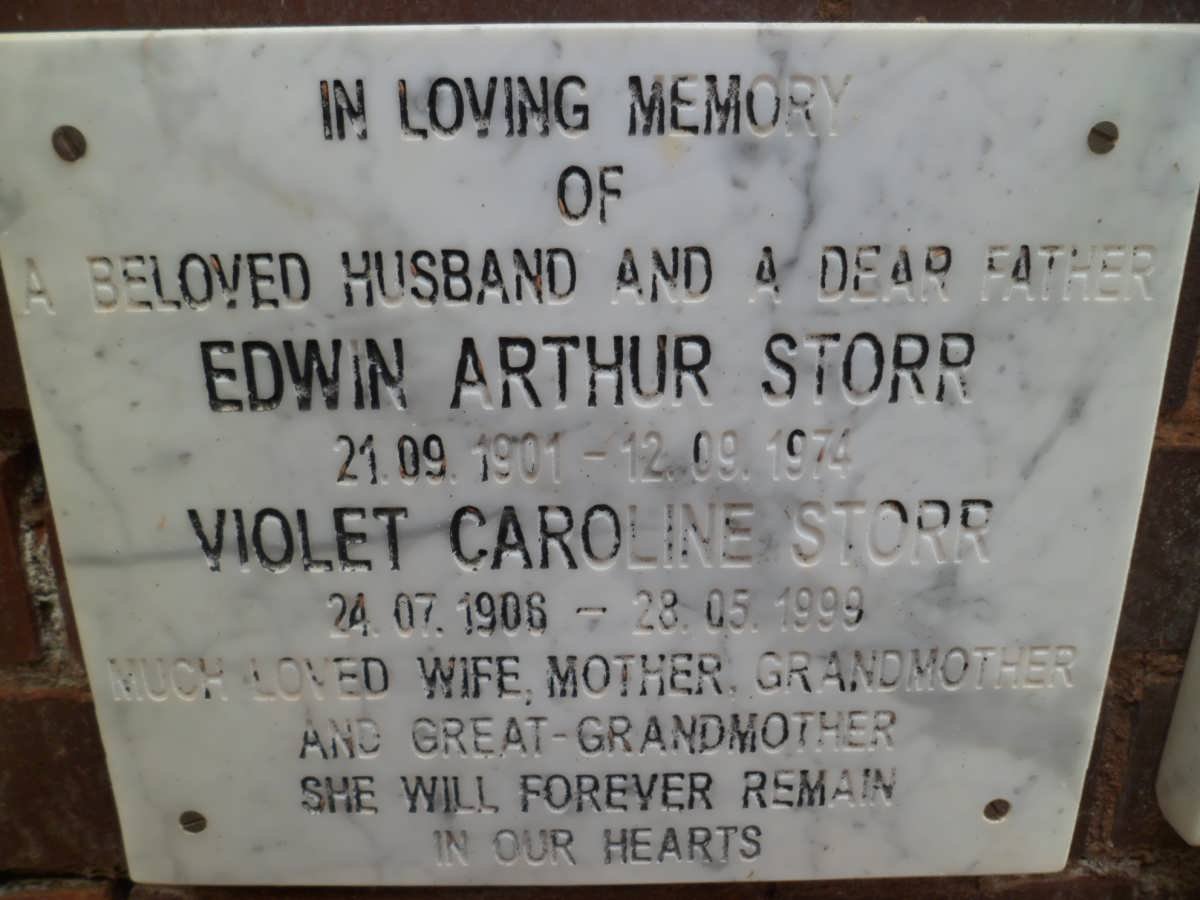 IN LOVING MEMORY
OF
A BELOVED HUSBAND AND A DEAR FATHER
EDWIN ARTHUR STORR
21.09.1901 - 12.09.1974
VIOLET CAROLINE STORR
24.07.1906 - 28.05.1999
MUCH LOVED WIFE, MOTHER, GRANDMOTHER
AND GREAT-GRANDMOTHER
SHE WILL FOREVER REMAIN
IN OUR HEARTS